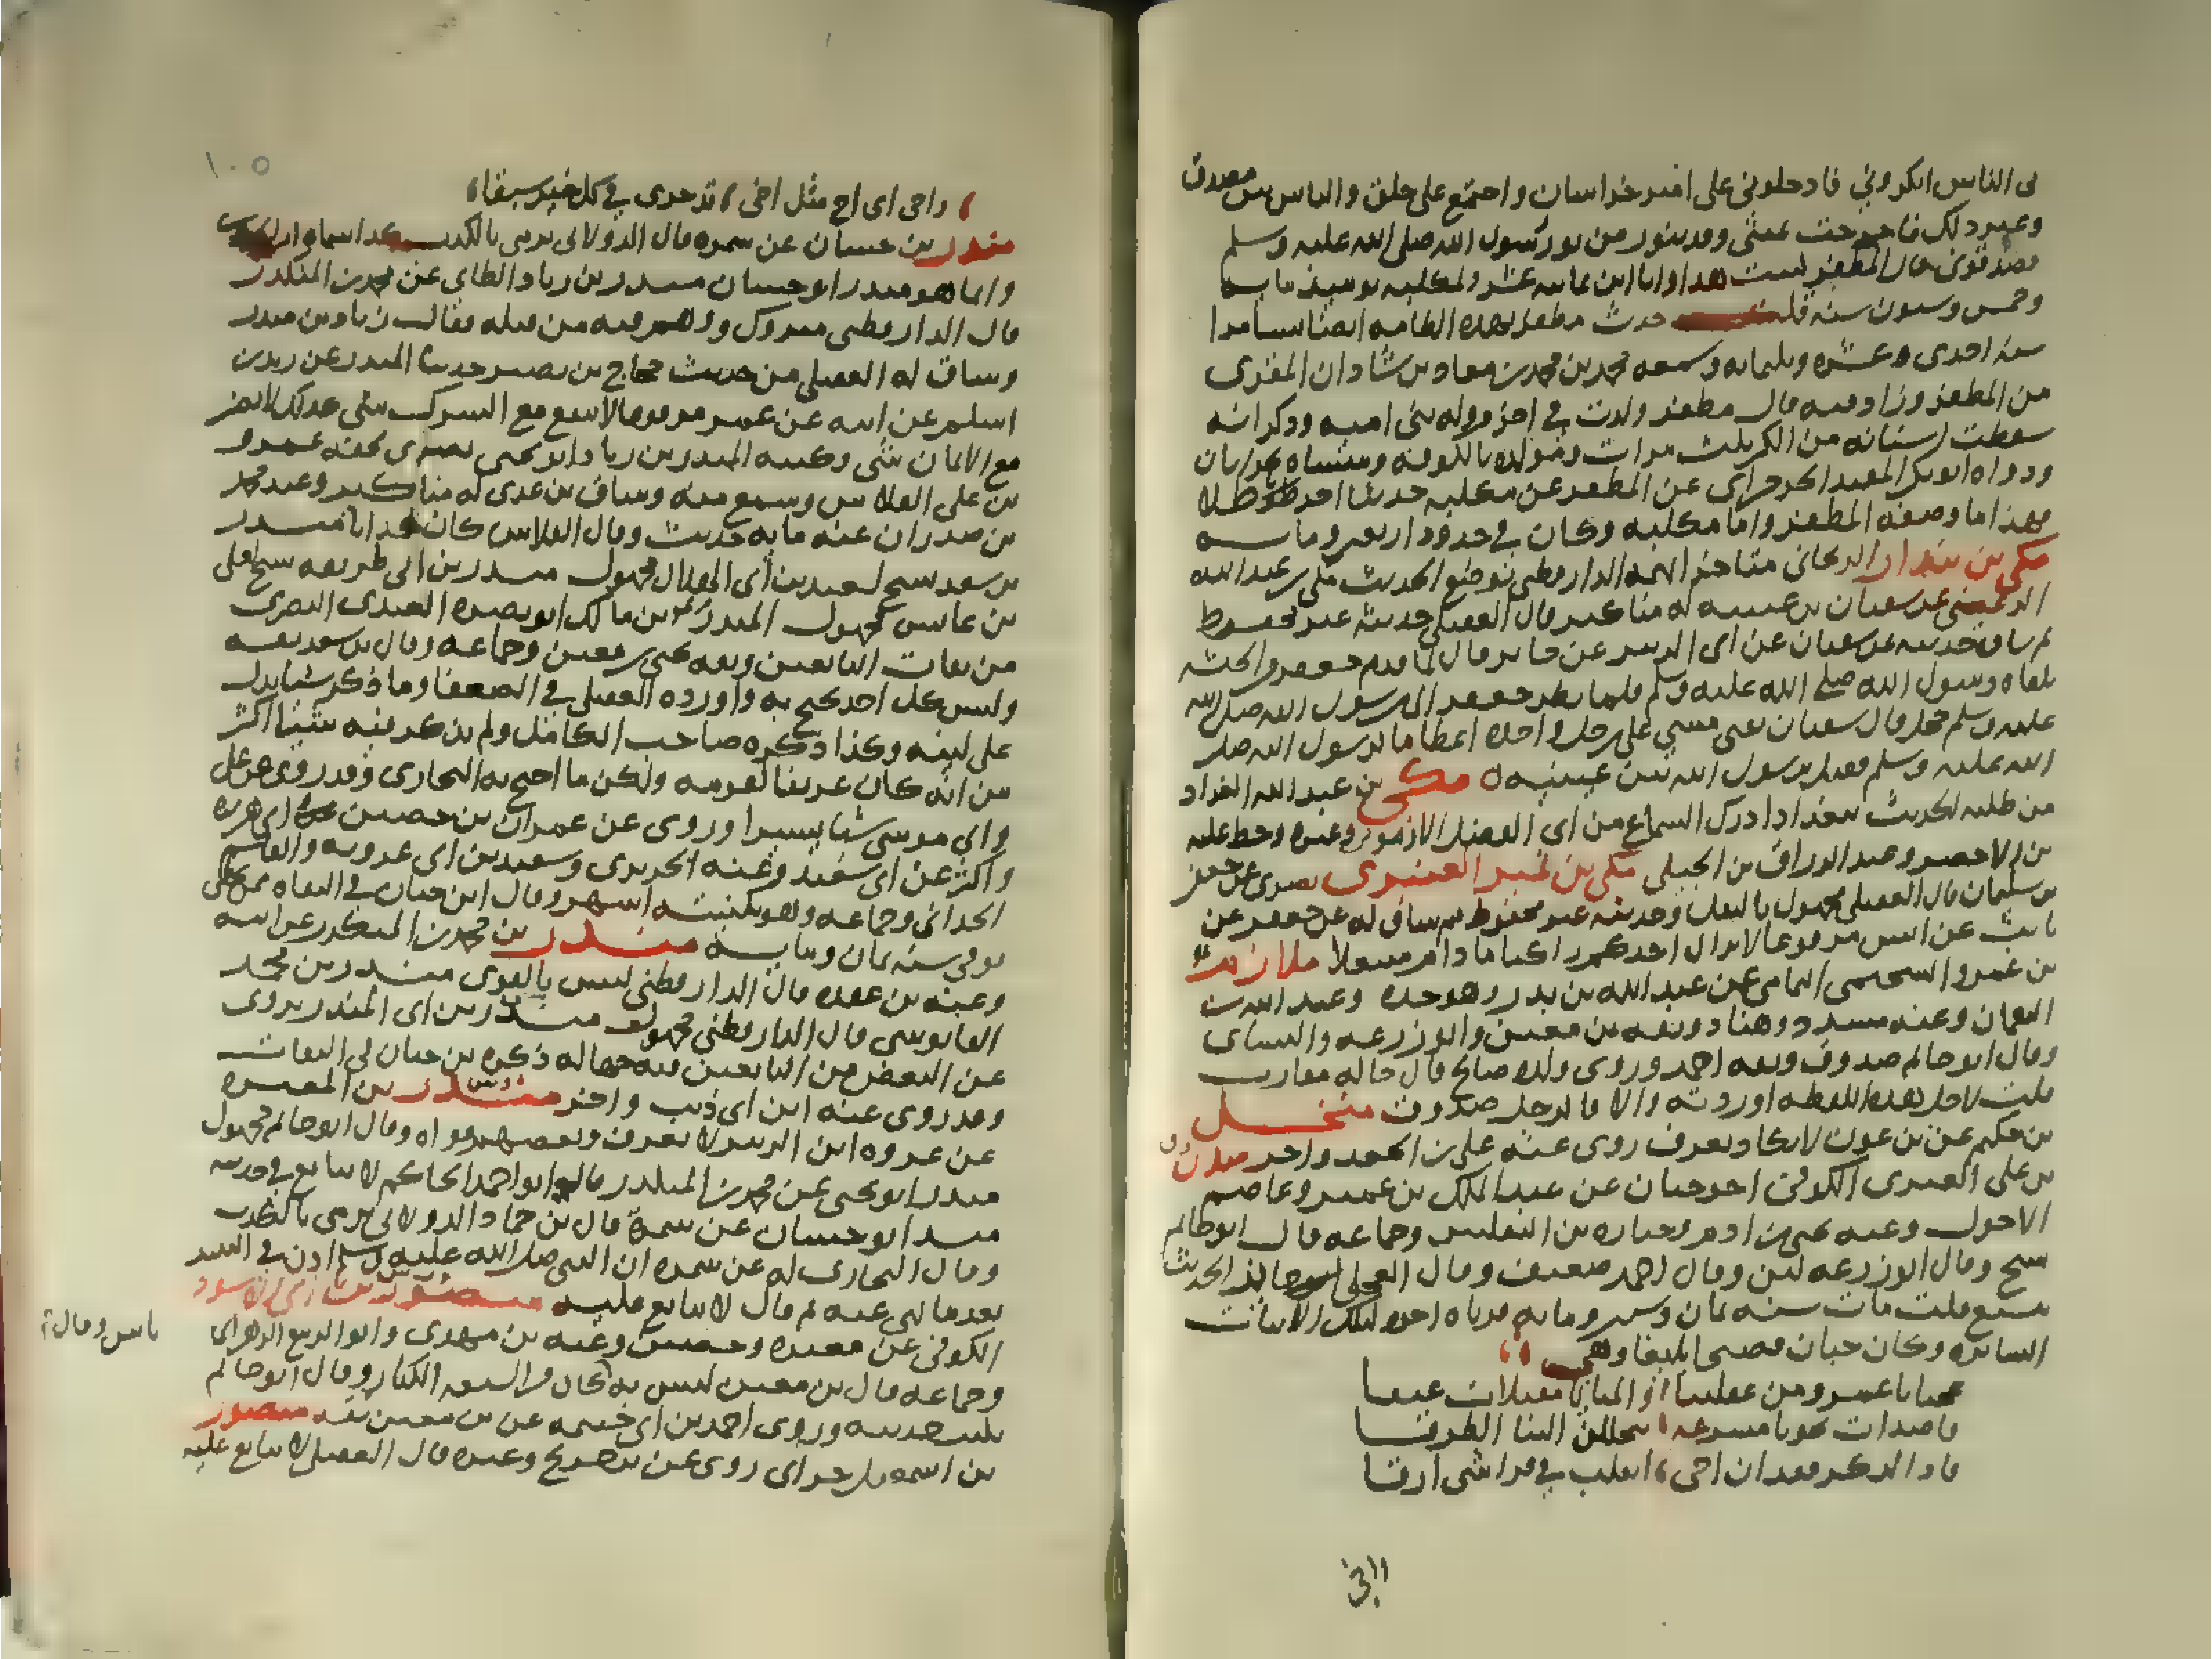 الناس انكروني فادخلوني على امير خراسان واجتمع على خلق والناس بين مصدق
وغير ذلك فاخرجت عيني وقد ينور من نور رسول الله صلى الله عليه وسلم
فصدقوني قال المظفر لست هذا وانا ابن مايه عشر ولمكلبه يوميذ مايه
وخمس وسنون سنه قلت حدث مظفر بهذه الطامه ايضا بسامرا
سنه احدى عشره وثلثمايه وسمعه محمد بن محمد بن معاذ بن شاذان المقرى
من المظفر وزاد فيه قال مظفر ولدت في اخر دوله بني اميه وذكر انه
سقطت اسنانه من الكبر ثلث مرات ومولده بالكوفه ومنشاه بخراسان
ورواه ابو بكر المفيد الجرجراي عن المظفر عن مكلبه حديثا اخر
فهذا ما وضعه المظفر واما مكلبه وكان في حدود اربعين ومايه
مكي بن بندار الزنجاني متاخر اتهمه الدارقطني بوضع الحديث مكي بن عبد الله
الرعيني عن سفيان بن عيينه له مناكير قال العقيلي حديثه غير محفوظ
ثم ساق حديثه عن سفيان عن ابي الزبير عن جابر قال لما قدم جعفر من الحبشه
تلقاه رسول الله صلى الله عليه وسلم فلما نظر جعفر الى رسول الله صلى الله
عليه وسلم حجل قال سفيان يعني مشى على رجل واحده اعظاما لرسول الله صلى
الله عليه وسلم فقبل رسول الله بين عينيه مكي بن عبد الله الغراد
من طلبه الحديث ببغداد ادرك السماع من ابي الفضل الارموي وغيره وحط عليه
بن الاخضر وعبد الرزاق بن الجيلي مكي بن قمير العنبري بصرى عن جعفر
بن سليمان قال العقيلي مجهول بالنقل وحديثه غير محفوظ ثم ساق له عن جعفر عن
ثابت عن انس مرفوعا لا يزال احدكم راكبا ما دام منتعلا ملازم
بن عمرو السحيمي اليمامي عن عبد الله بن بدر وهوذه وعبد الله بن
النعمان وعنه مسدد وهناد وثقه بن معين وابو زرعه والنساى
وقال ابو حاتم صدوق وثقه احمد وروى ولده صالح قال حاله مقارب
قلت لاجل هذه اللفظه اوردته والا فالرجل صدوق منخل
بن حكيم عن بن عون لا يكاد يعرف روى عنه على بن الجعد واخر مندل
بن على العنزى الكوفي اخو حبان عن عبد الملك بن عمير وعاصم
الاحول وعنه يحيى بن ادم وجباره بن المغلس وجماعه قال ابو حاتم
شيخ وقال ابو زرعه لين وقال احمد ضعيف وقال العجلي جايز الحديث
يتشيع قلت مات سنه ثمان وستين ومايه فرثاه اخوه بتلك الابيات
السايره وكان حبان فصيحا بليغا وهي
عجبا يا عمرو من غفلتنا والمنايا مقبلات عنقا
قاصدات نحونا مسرعه يتخللن الينا الطرقا
فاذا اذكر فقدان اخي اتقلب في فراشي ارقا
١٠٥
واخي اي اخ مثل اخي قد جرى في كل خير سبقا
منذر بن حسان عن سمره قال الدولابي يرمى بالكذب
وانما هو منذر ابو حسان منذر بن زياد الطاي عن محمد بن المنكدر
قال الدارقطني متروك ووهم فيه من قبله فقال زياد بن منذر
وساق له العقيلي من حديث حجاج بن نصير حدثنا المنذر عن زيد بن
اسلم عن ابيه عن عمر مرفوعا لا ينفع مع الشرك شي كذلك لا يضر
مع الايمان شي وكنيه المنذر بن زياد ابو يحيى بصرى لحقه عمرو
بن على الفلاس وسمع منه وساق بن عدى له مناكير وعند محمد
بن صدران عنه مايه حديث وقال الفلاس كان كذابا منذر
بن سعد شيخ لسعيد بن ابي الهلال مجهول منذر بن ابي طريفه شيخ لعلى
بن عابس مجهول المنذر بن مالك ابو نضره العبدى البصرى
من ثقات التابعين وثقه يحيى بن معين وجماعه وقال بن سعد ثقه
وليس كل احد يحتج به واورده العقيلي في الضعفا وما ذكر شيا يدل
على لينه وكذا ذكره صاحب الكامل ولم يذكر فيه شيا اكثر
من انه كان عريفا لقومه ولكن ما احتج به البخارى وقد روى عن على
وابي موسى شيا يسيرا وروى عن عمران بن حصين وابي هريره
واكثر عن ابي سعيد وعنه الجريرى وسعيد بن ابي عروبه والقاسم
الحداني وجماعه وهو بكنيته اشهر وقال ابن حبان في الثقات كان ممن يخطى
توفي سنه ثمان ومايه منذر بن محمد بن المنكدر عن ابيه
وعنه بن عقده قال الدارقطني ليس بالقوى منذر بن محمد
القابوسي قال الدارقطني مجهول منذر بن ابي المنذر يروى
عن البعض من التابعين فيه جهاله ذكره بن حبان في الثقات
وقد روى عنه ابن ابي ذيب واخر منذر بن المغيره
عن عروه ابن الزبير لا يعرف وبعضهم قواه وقال ابو حاتم مجهول
منذر ابو يحيى عن محمد بن المنكدر قال ابو احمد الحاكم لا يتابع في حديثه
منذر ابو حسان عن سمرة قال بن حماد الدولابي يرمى بالكذب
وقال البخارى له عن سمره ان النبي صلى الله عليه وسلم اذن في النبيذ
بعد ما نهى عنه ثم قال لا يتابع عليه منصور بن ابي الاسود
الكوفي عن مغيره وحصين وعنه بن مهدى وابو الربيع الزهراني
وجماعه قال بن معين ليس به باس وقال كان من الشيعه الكبار وقال ابو حاتم
يكتب حديثه وروى احمد بن ابي خيثمه عن بن معين ثقه منصور
بن اسمعيل حراني روى عن بن جريج وغيره قال العقيلي لا يتابع عليه
باس وقال